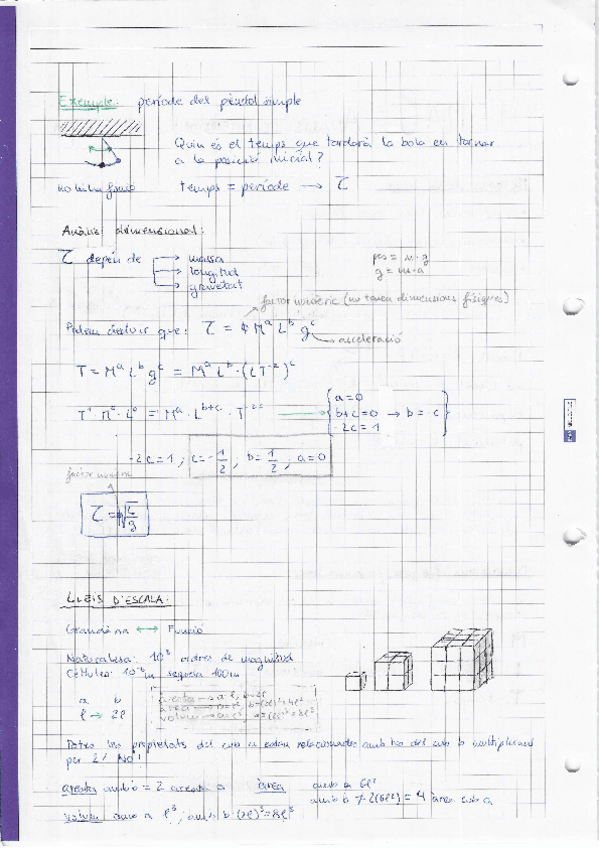 Exemple: període del pèndol simple
Quin és el temps que tardarà la bola en tornar
a la posició inicial?
no hi ha fricció
temps = període → τ
Anàlisi dimensional:
τ depèn de → massa
→ longitud
→ gravetat
pes = m·g
g = m·a
factor numèric (no tenen dimensions físiques)
Podem deduir que: τ = ϕ M^a L^b g^c
acceleració
T = M^a L^b g^c = M^a L^b · (LT^-2)^c
T^1 · M^0 · L^0 = M^a · L^(b+c) · T^-2c →
a = 0
b+c = 0 → b = -c
-2c = 1
-2c = 1 ; c = -1/2 ; b = 1/2 ; a = 0
factor numèric
τ = ϕ √(L/g)
LLEIS D'ESCALA:
Grandària ↔ Funció
Naturalesa: 10^8 ordres de magnitud
Cèl·lules: 10^-6 m sequoia 100m
a b
l → 2l
aresta → a = l, b = 2l
àrea → a = l², b = (2l)² = 4l²
volum → a = l³, = (2l)³ = 8l³
Totes les propietats del cub a estan relacionades amb les del cub b multiplicant
per 2? NO!
aresta cub b = 2 aresta a àrea cub a 6l²
cub b 2(6l²) = 4 àrea cub a
volum cub a l³, cub b (2l)³ = 8l³